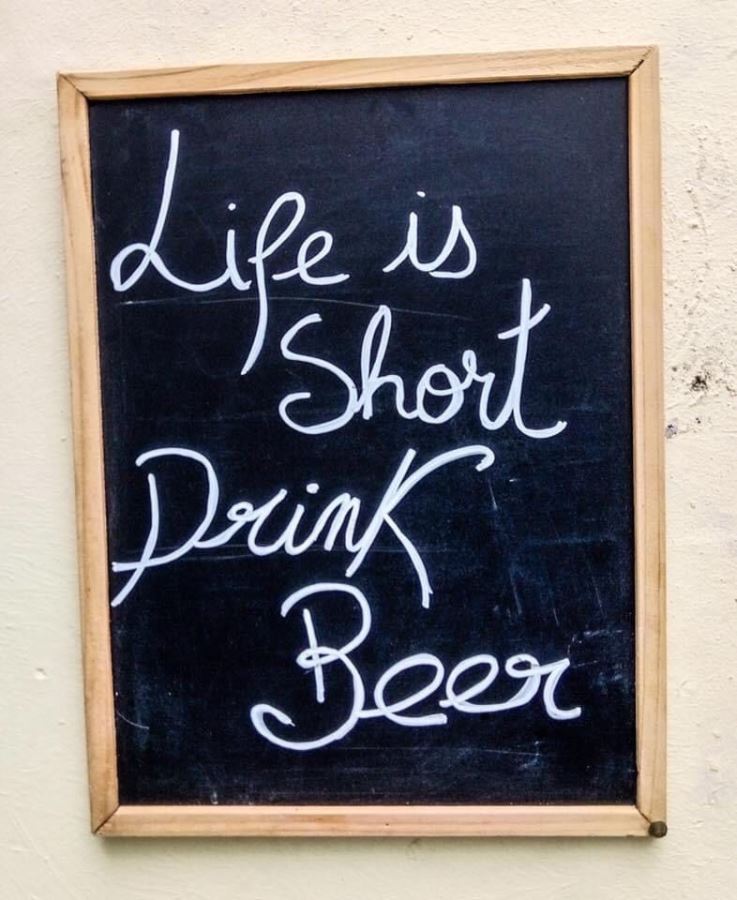 Life is
Short
Drink
Beer